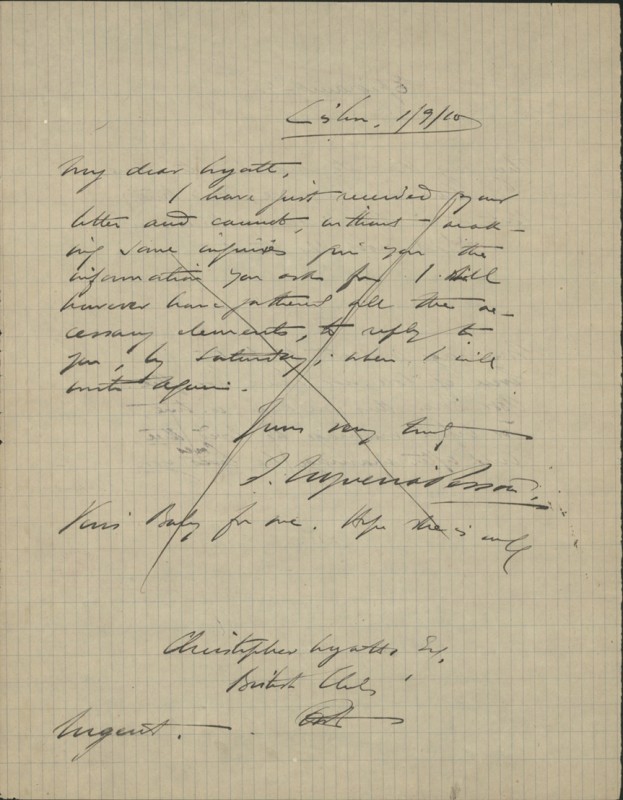 Lisbon, 1/9/10
My dear Wyatt,
I have just received your
letter and cannot, without mak-
ing some inquiries give you the
information you ask for. I will
however have gathered all the ne-
cessary elements, to reply to
you, by Saturday, when I will
write again.
Yours very truly
Kiss Baby for me. Hope she is well
Christopher Wyatt, Esq,
British Club
Urgent.